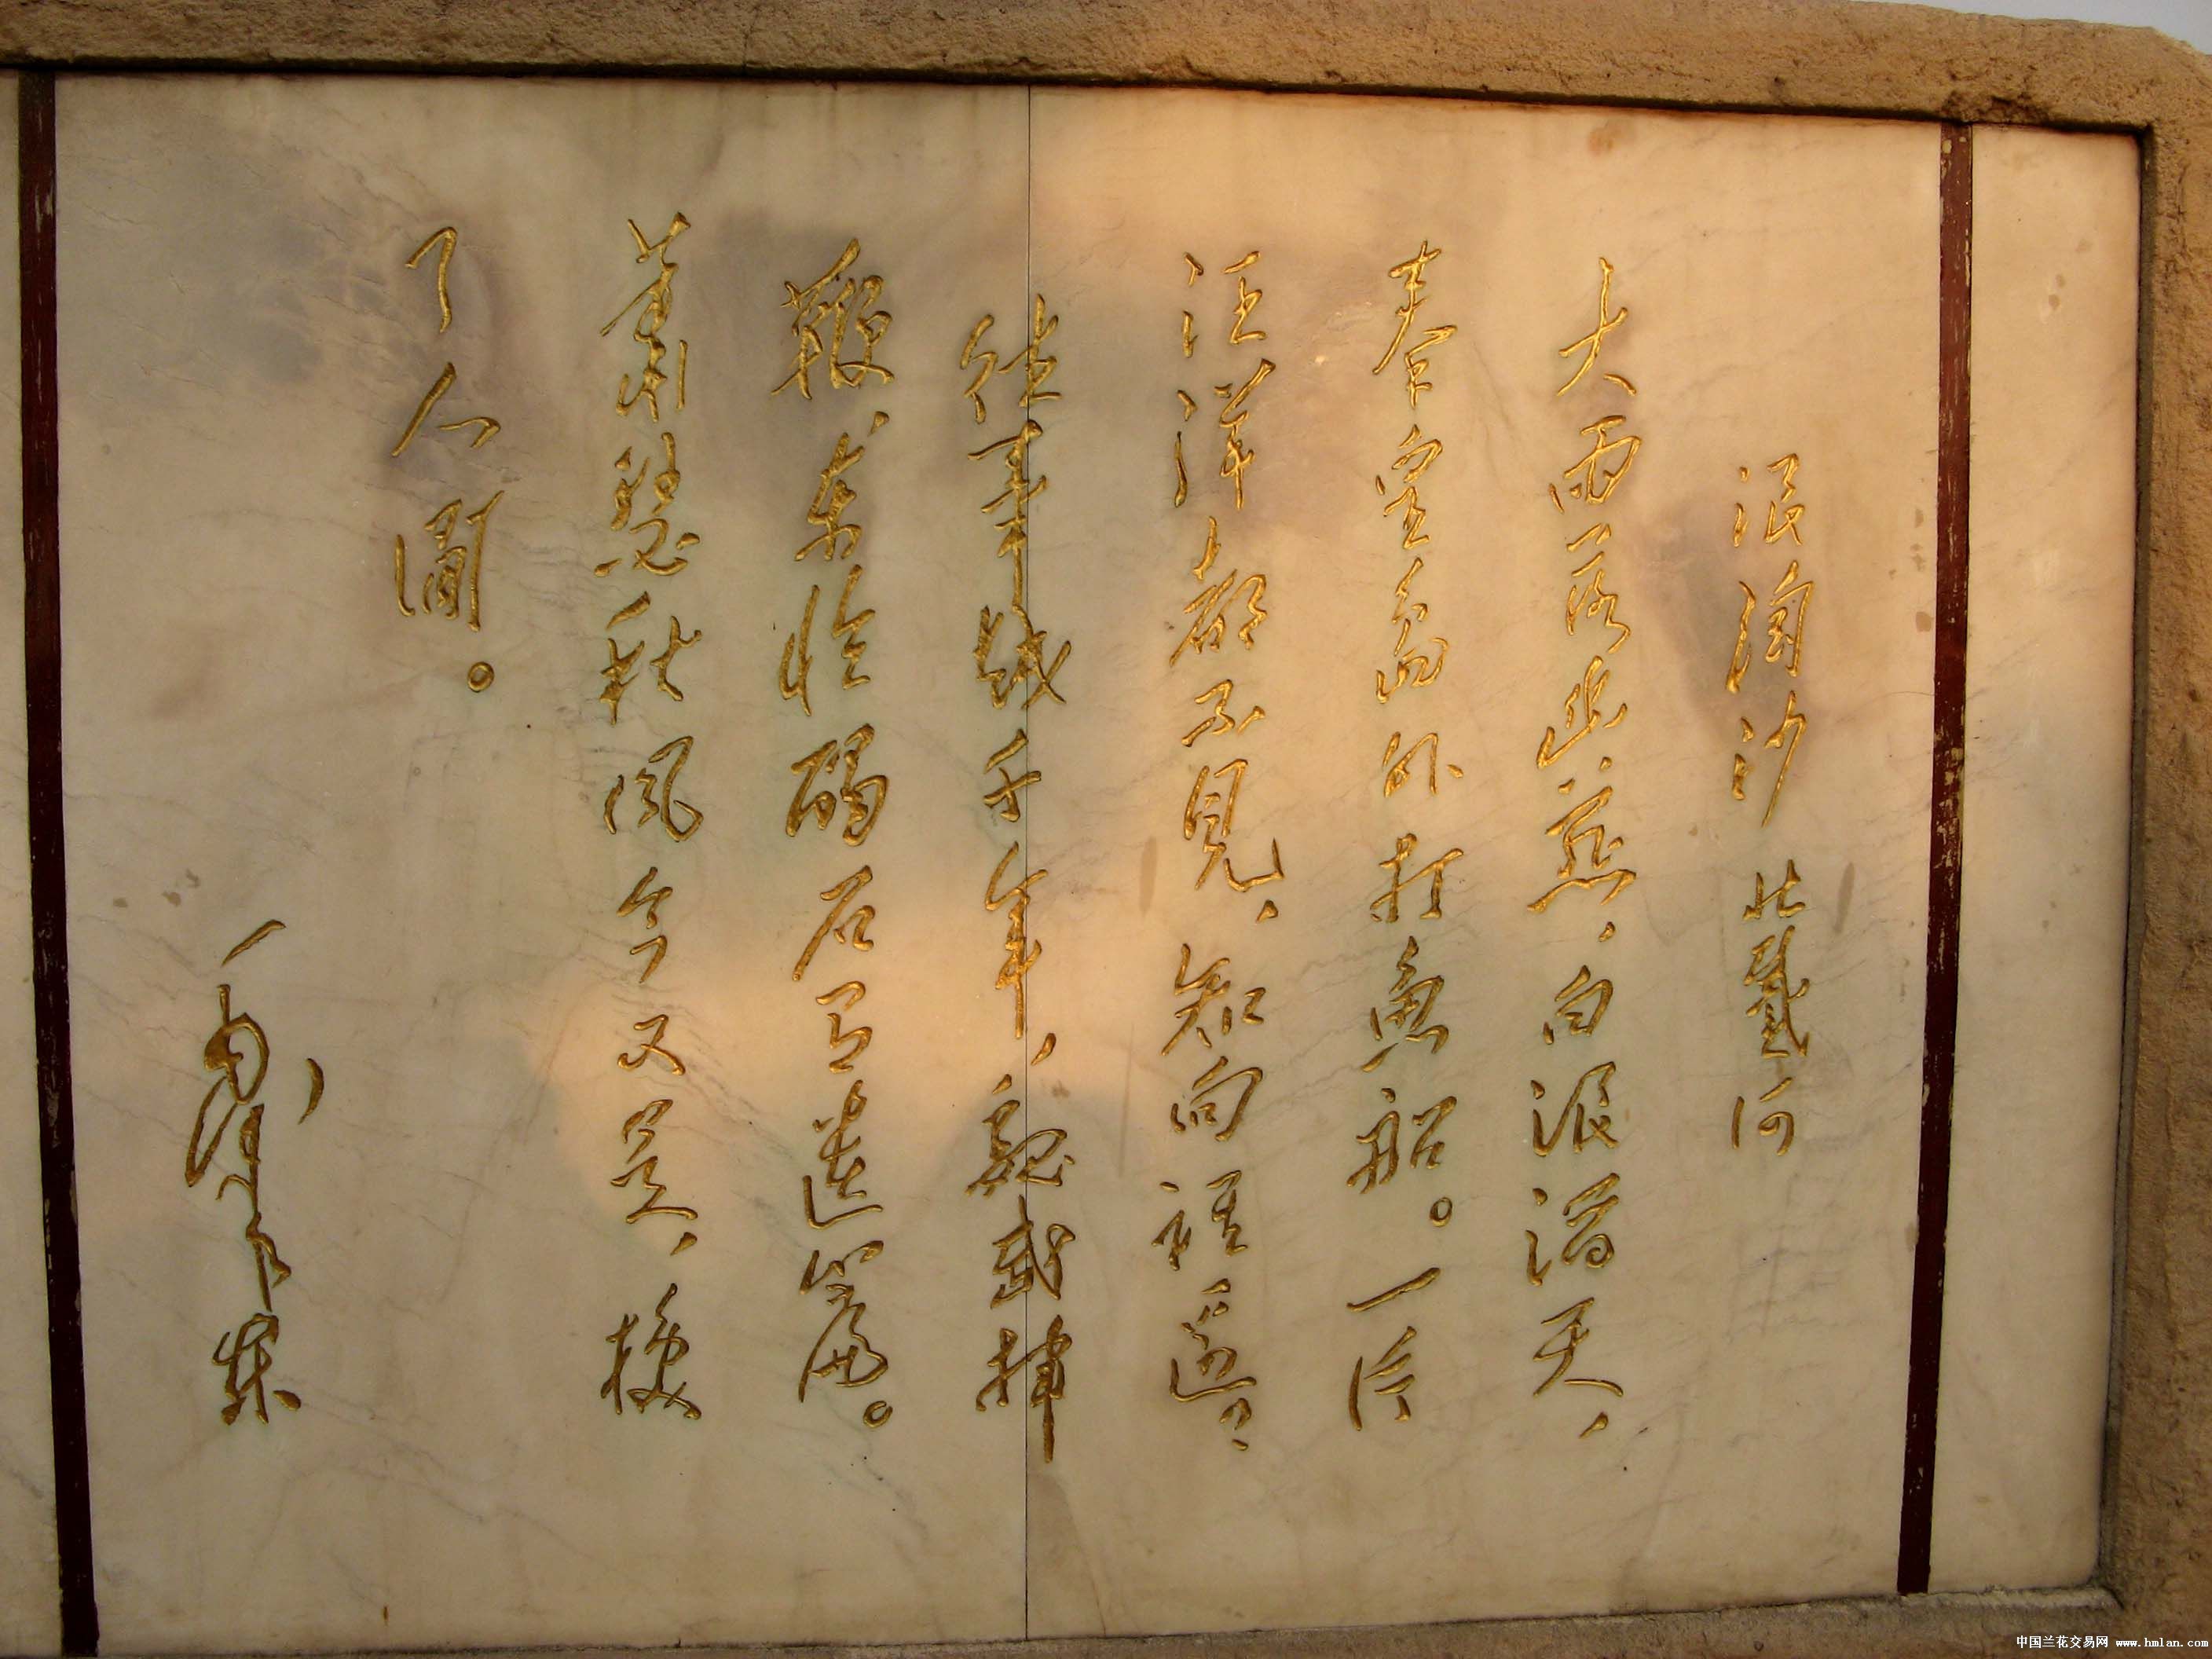 浪淘沙 北戴河
大雨落幽燕、白浪滔天、
秦皇島外打魚船。一片
汪洋都不見、知向誰邊、
往事越千年、魏武揮
鞭、東臨碣石有遺篇。
蕭瑟秋風今又是、換
了人間。
毛澤东
中国兰花交易网 www.hmlan.com